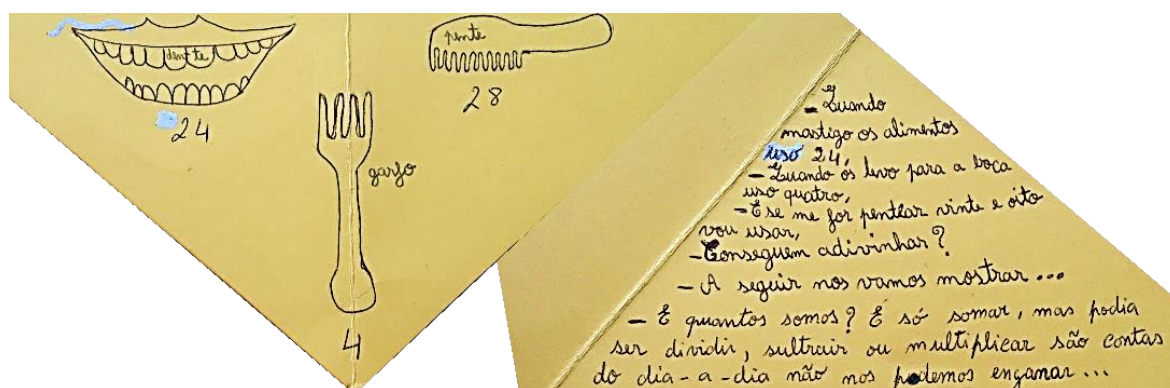 dente
24
pente
28
garfo
4
- Quando
mastigo os alimentos
uso 24,
- Quando os levo para a boca
uso quatro,
- E se me for pentear vinte e oito
vou usar,
- Conseguem adivinhar?
- A seguir nos vamos mostrar...
- E quantos somos? É só somar, mas podia
ser dividir, subtrair ou multiplicar são contas
do dia-a-dia não nos podemos enganar...